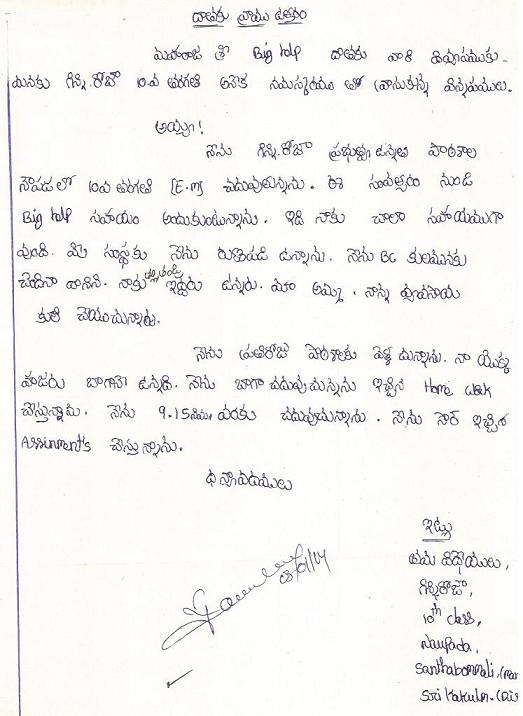 దాతకు వ్రాయు ఉత్తరం
మహారాజ శ్రీ Big help దాతకు వారి దివ్యసముకు.
మనకు గిన్ని.రోజా 10వ తరగతి అనేక నమస్కారము లతో వ్రాసుకున్న విన్నపములు.
అయ్యా!
నేను గిన్ని.రోజా ప్రభుత్వ ఉన్నత పాఠశాల
నౌపడ లో 10వ తరగతి [E.m] చదువుతున్నాను. ఈ సంవత్సరం నుండి
Big help సహాయం అందుకుంటున్నాను. ఇది నాకు చాలా సహాయముగా
వుంది. మీ సంస్థకు నేను రుణపడి ఉన్నాను. నేను BC కులమునకు
చెందిన దానిని. నాకు తల్లితండ్రి ఇద్దరు ఉన్నరు. మా అమ్మ, నాన్న వ్యవసాయ
కూలి చేయుచున్నారు.
నేను ప్రతిరోజు పాఠశాలకు వెళ్ళ చున్నాను. నా యొక్క
హాజరు బాగానే ఉన్నది. నేను బాగా చదువుచున్నాను ఇచ్చిన Home Work
చేస్తున్నాను. నేను 9.15నిమి వరకు చదువుచున్నాను. నేను సార్ ఇచ్చిన
Assinment's చేస్తున్నాను.
ధన్యవాదములు
ఇట్లు
తమ విధేయులు,
గిన్నిరోజా,
10th class,
Naupada,
Santhabommali.(man
Sri kakulm.(Dis